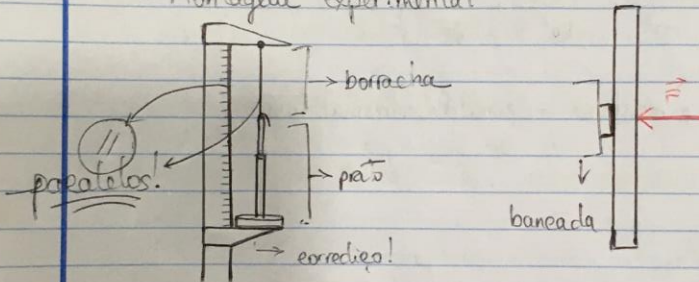 Montagem experimental
borracha
//
paralelos!
prato
corrediço!
bancada